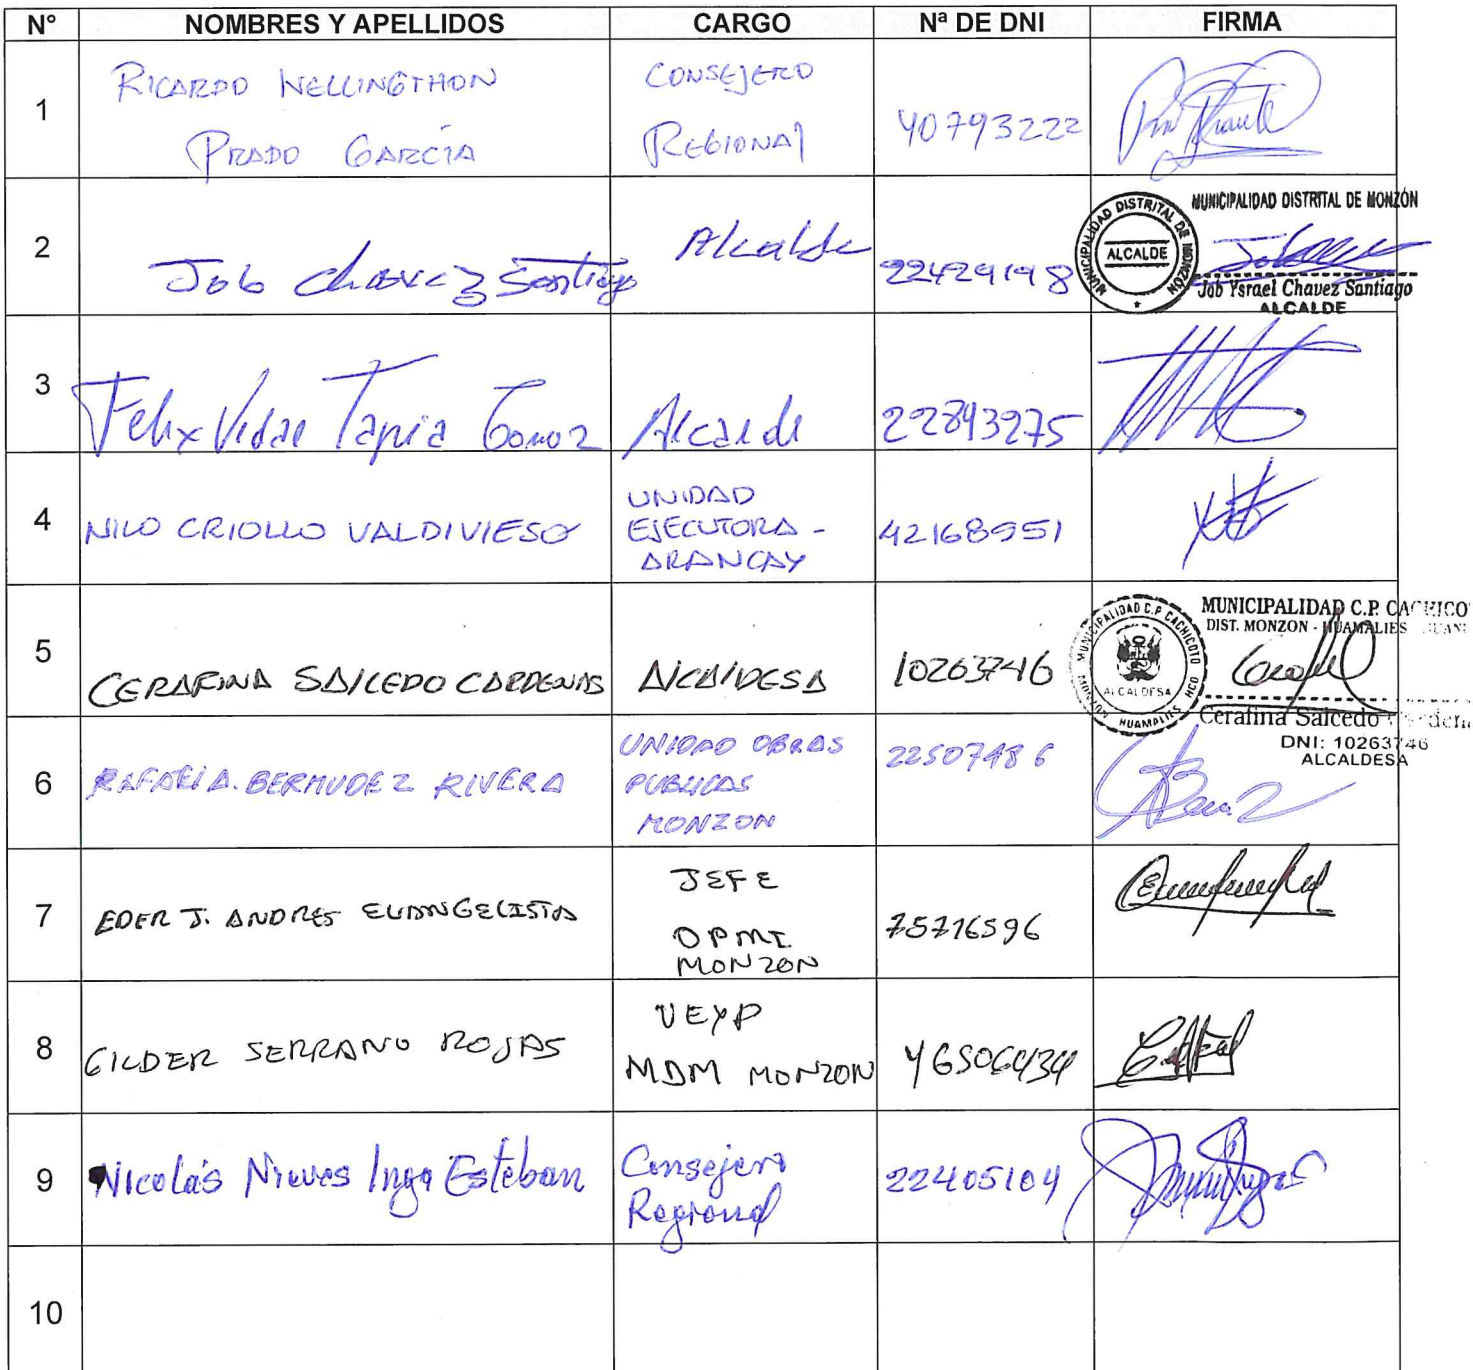 N° NOMBRES Y APELLIDOS CARGO Nª DE DNI FIRMA
1 RICARDO WELLINGTHON PRADO GARCÍA CONSEJERO REGIONAL 40793222
2 Job Chavez Santiago Alcalde 22429198
MUNICIPALIDAD DISTRITAL DE MONZÓN
MUNICIPALIDAD DISTRITAL DE MONZON
ALCALDE
Job Ysrael Chavez Santiago
ALCALDE
3 Felix Vidal Tapia Gomez Alcalde 22893275
4 NILO CRIOLLO VALDIVIESO UNIDAD EJECUTORA - ARANCAY 42168951
5 CERAFINA SALCEDO CARDENAS ALCALDESA 10263746
MUNICIPALIDAD C.P. CACHICOTO
ALCALDESA
HUAMALIES HCO
MUNICIPALIDAD C.P. CACHICO
DIST. MONZON - HUAMALIES
Cerafina Salcedo
DNI: 10263746
ALCALDESA
6 RAFAEL A. BERMUDEZ RIVERA UNIDAD OBRAS PUBLICAS MONZON 22507486
7 EDER J. ANDRES EVANGELISTA JEFE OPMI MONZON 75716596
8 GILDER SERRANO ROJAS UEYP MDM MONZON 46506434
9 Nicolás Nieves Inga Esteban Consejero Regional 22405104
10